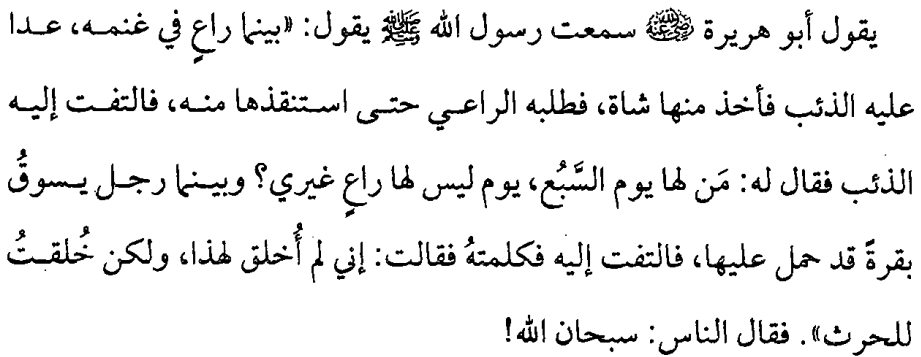 يقول أبو هريرة رضي الله عنه سمعت رسول الله ﷺ يقول: «بينما راعٍ في غنمه، عدا
عليه الذئب فأخذ منها شاة، فطلبه الراعي حتى استنقذها منه، فالتفت إليه
الذئب فقال له: مَن لها يوم السَّبُع، يوم ليس لها راعٍ غيري؟ وبينما رجل يسوقُ
بقرةً قد حمل عليها، فالتفت إليه فكلمتهُ فقالت: إني لم أُخلق لهذا، ولكن خُلقتُ
للحرث». فقال الناس: سبحان الله!